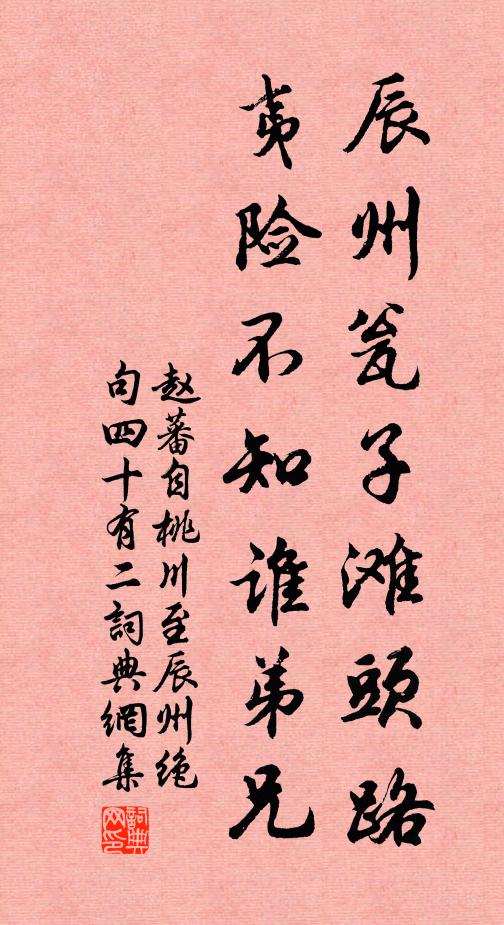 辰州瓮子滩頭路
夷险不知谁弟兄
赵蕃自桃川至辰州绝
句四十有二詞典網集
詞典
网印